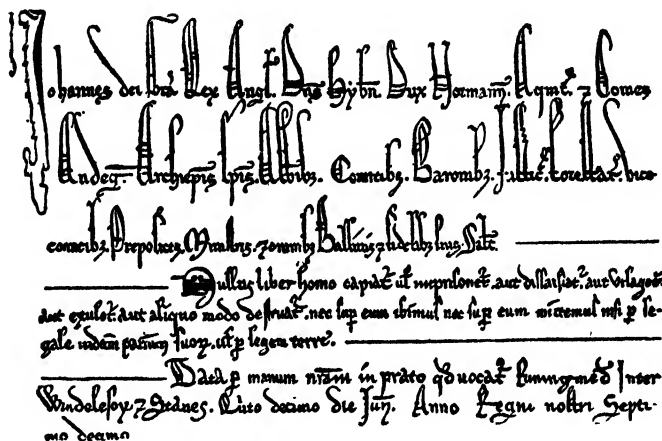 Johannes dei Gra Rex Angl. Dns Hybn. Dux Normann. Aqnit. ⁊ Comes
Andeg. Archiepis Epis. Abbibz. Comitibz. Baronibz. Justic. Forestar. vice
comitibz. Prepositis. Ministris. ⁊ omnibz Ballivis ⁊ fidelibz suis. Salt.
Nullus liber homo capiat. ul inprisonet. aut dissaisiat. aut utlaget.
aut exulet. aut aliquo modo destruat. nec sup eum ibimus nec sup eum mittemus nisi p le-
gale judicium parium suorz. ul p legem terre.
Data p manum nram in prato qd vocat Runingmed Inter
Windelesorz. ⁊ Stanes. Quto decimo die Jun. Anno Regni nostri Septi-
mo decimo